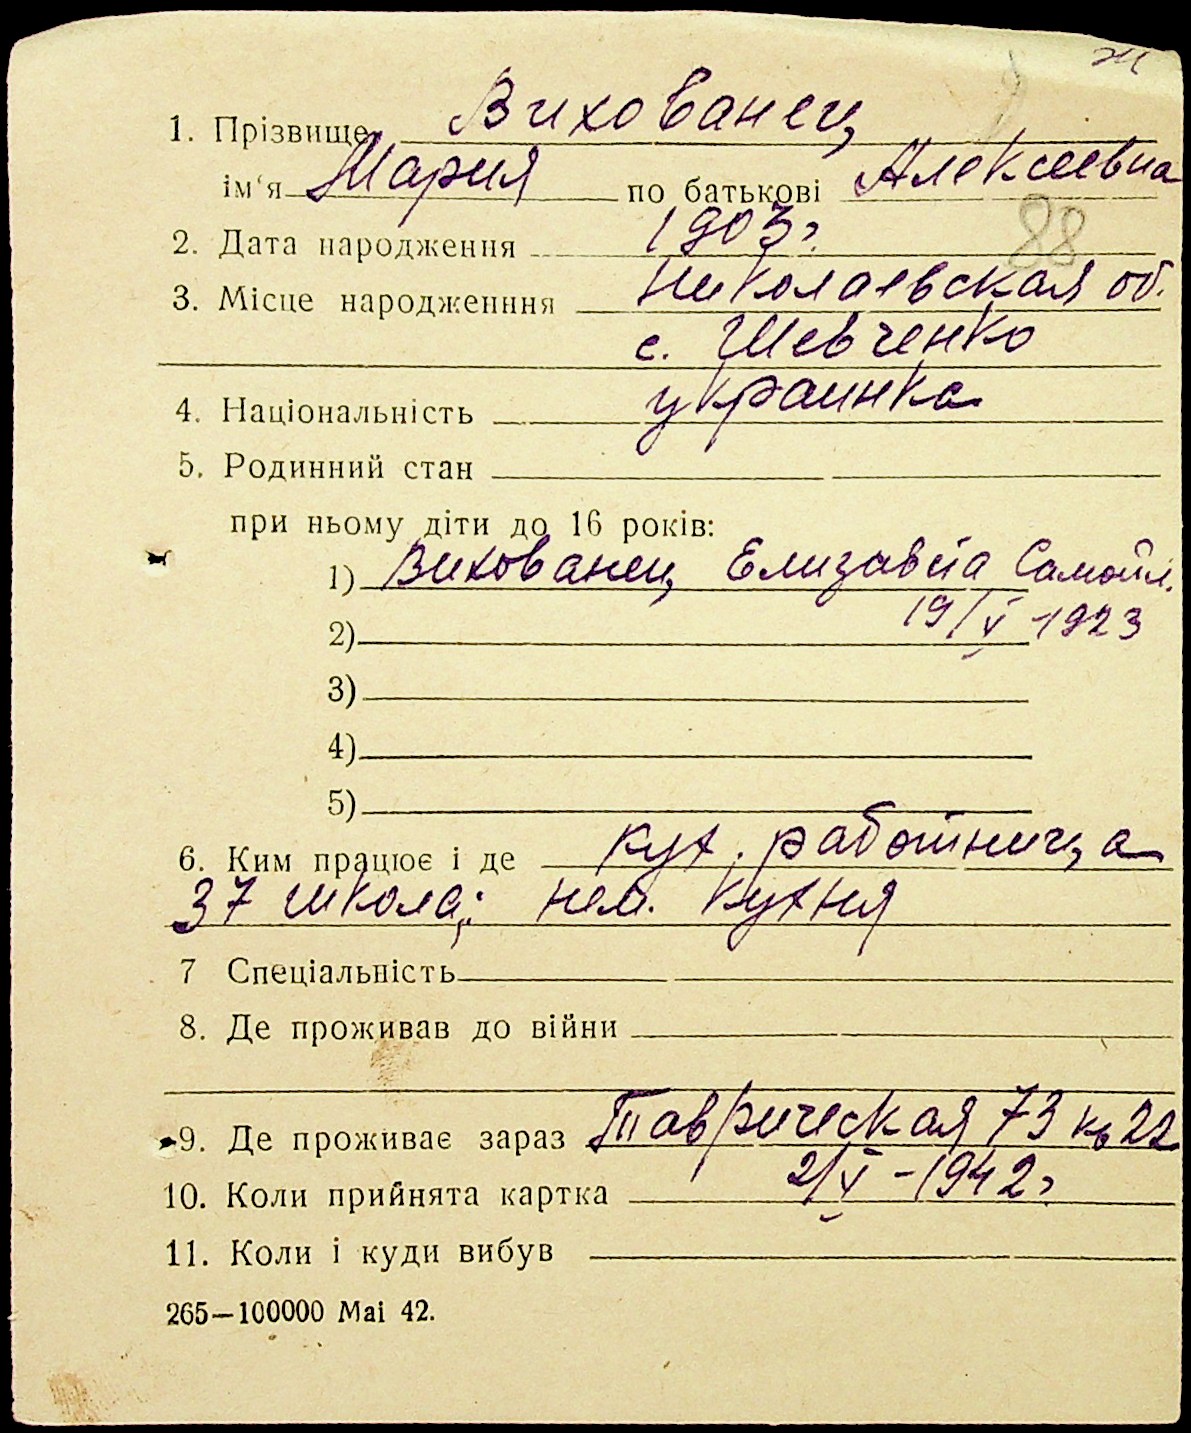 ж
1. Прізвище Вихованец
ім'я Мария по батькові Алексеевна
2. Дата народження 1903 г.
88
3. Місце народженння Николаевская об.
с. Шевченко
4. Національність украинка
5. Родинний стан
при ньому діти до 16 років:
1) Вихованец Елизавета Самойл.
19/V 1923
2)
3)
4)
5)
6. Ким працює і де кух. работница
37 школа; нем. кухня
7 Спеціальність
8. Де проживав до війни
9. Де проживає зараз Таврическая 73 кв 22
10. Коли прийнята картка 2/V - 1942 г.
11. Коли і куди вибув
265—100000 Mai 42.